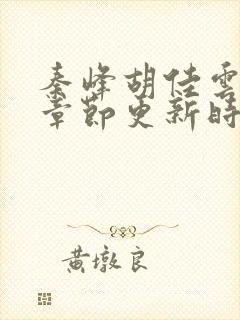 秦峰胡佳雲
章節更新時
黃墩良